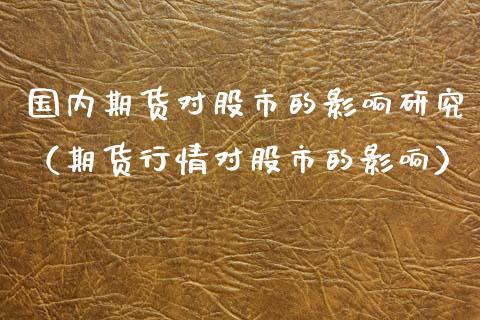 国内期货对股市的影响研究
（期货行情对股市的影响）